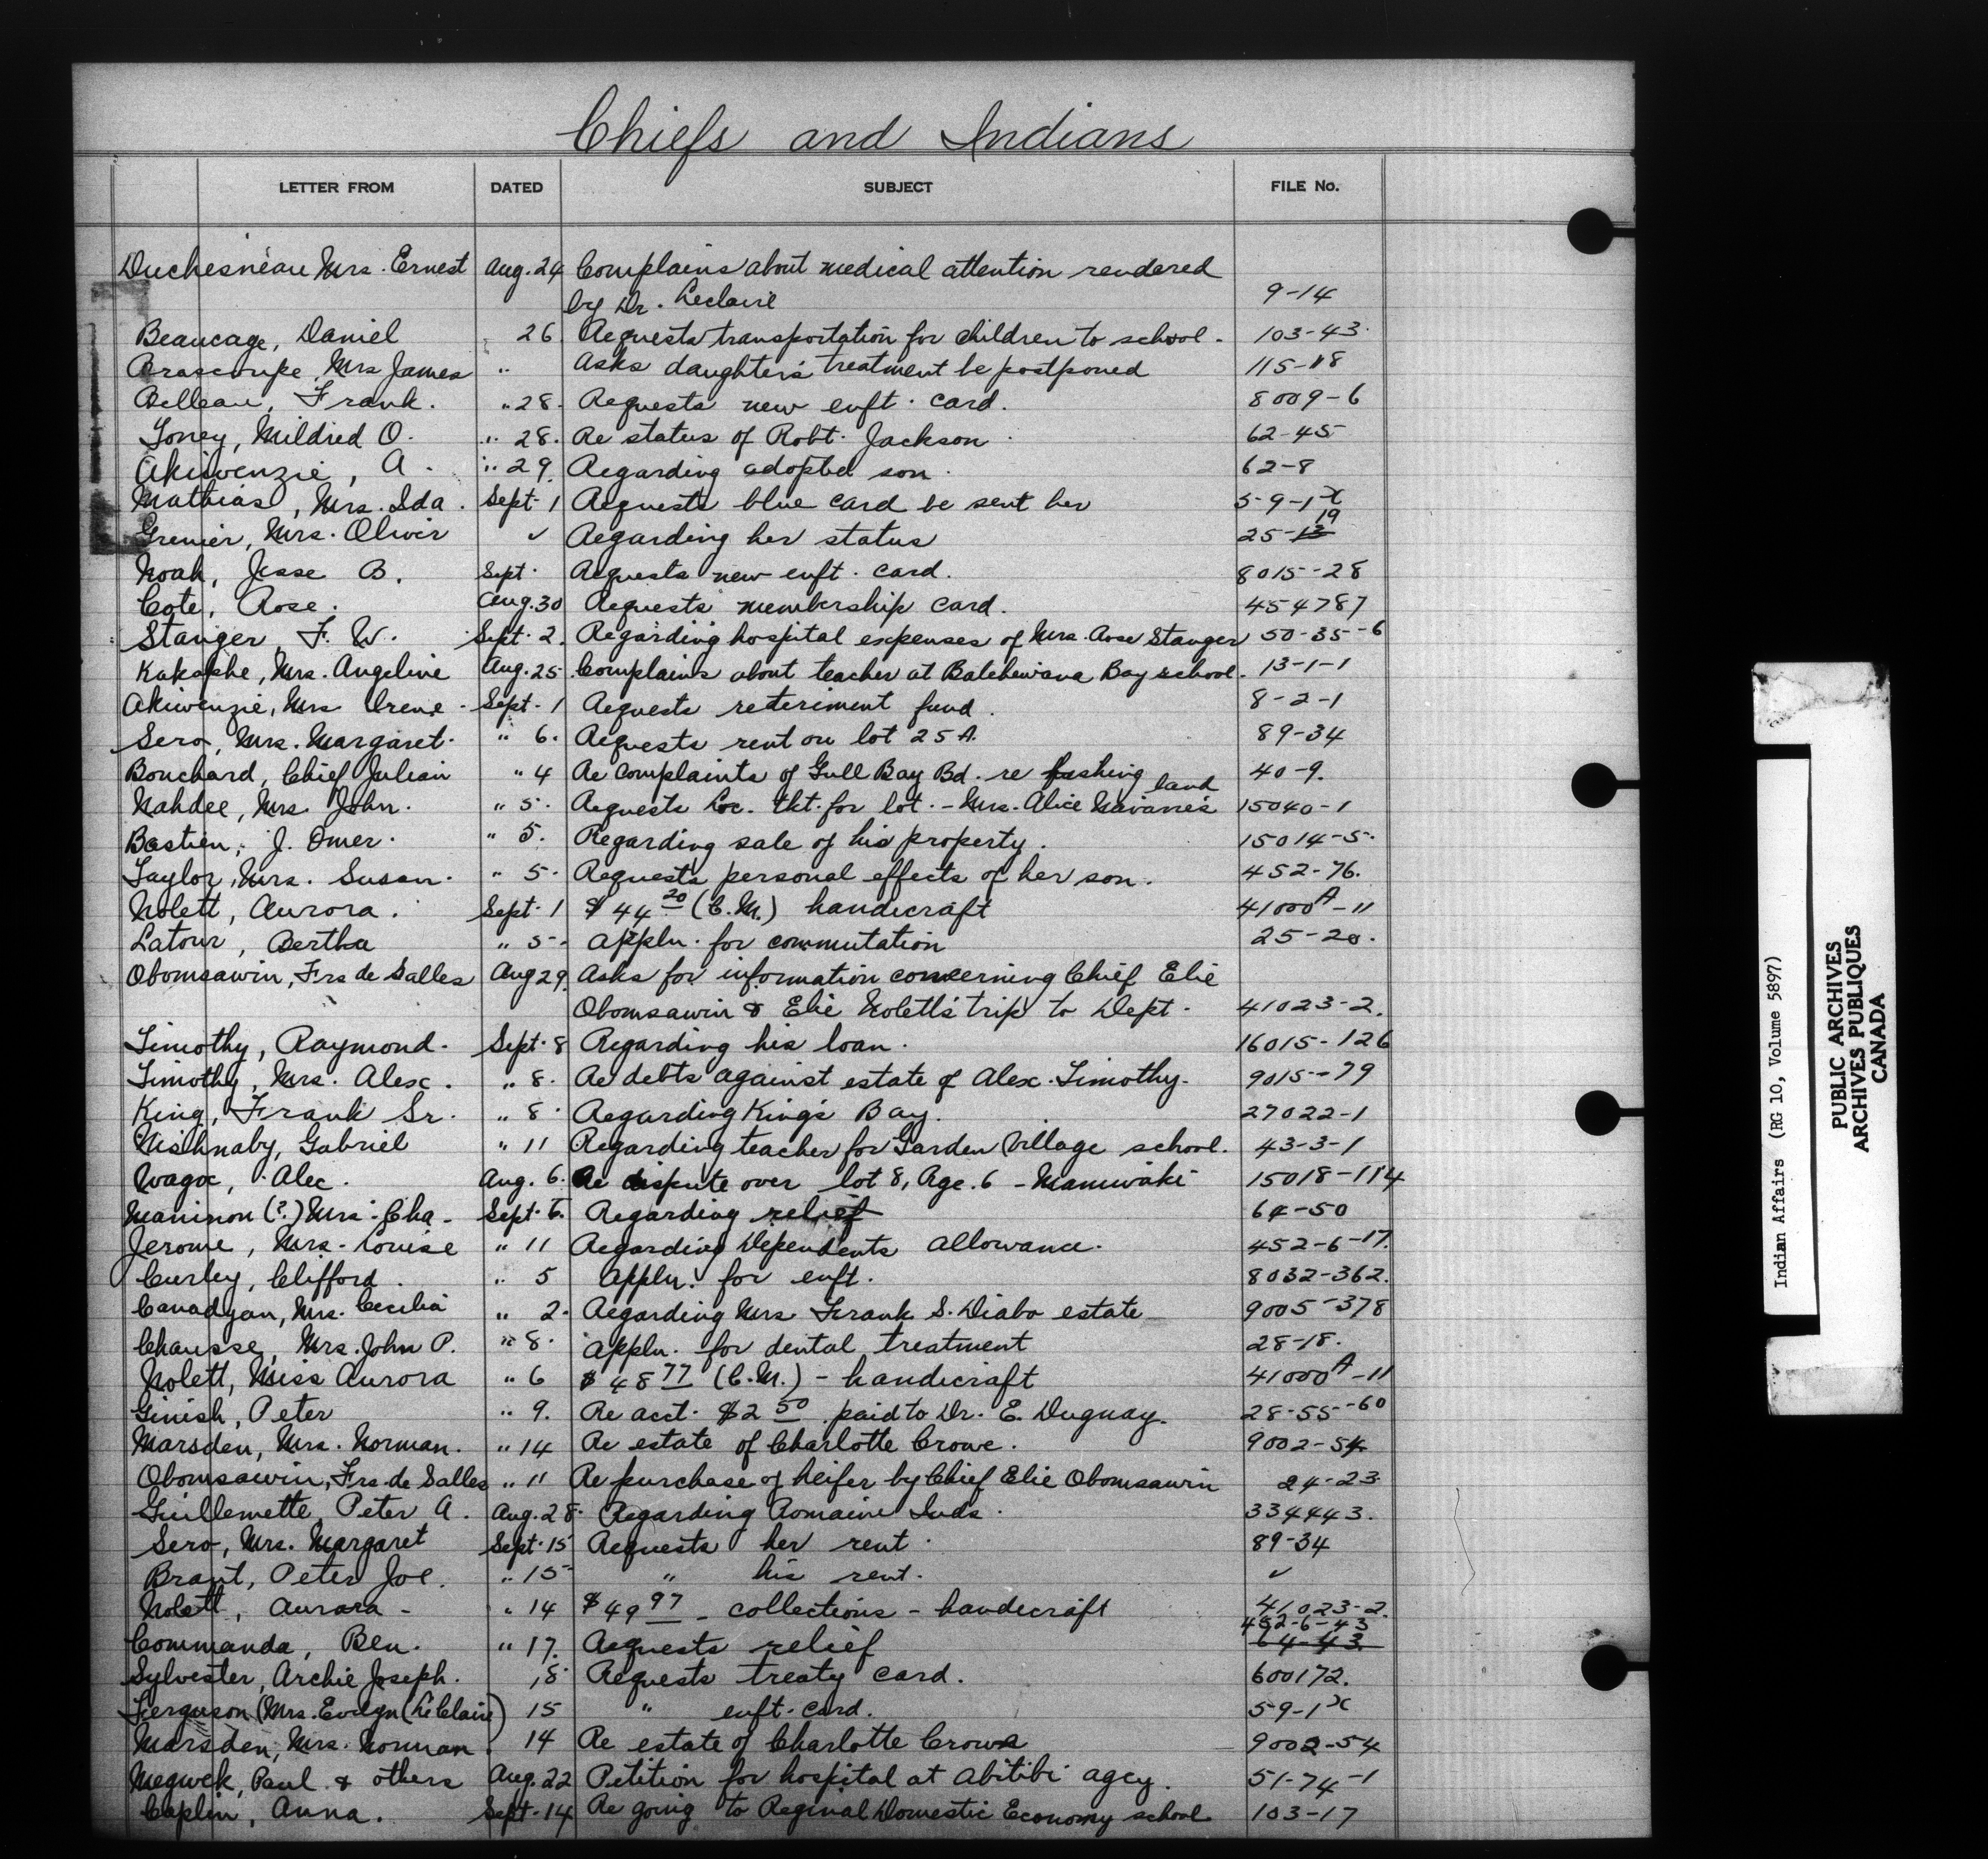 Chiefs and Indians
LETTER FROM DATED SUBJECT FILE No.
Duchesneau Mrs. Ernest Aug. 24 Complains about medical attention rendered
by Dr. Leclaire 9-14
Beaucage, Daniel " 26 Requests transportation for children to school - 103-43
Brascoupe, Mrs James " Asks daughter's treatment be postponed 115-18
Belleau, Frank. " 28. Requests new enft. card. 8009-6
Toney, Mildred O. " 28. Re status of Robt. Jackson 62-45
Akiwenzie, A. " 29. Regarding adopted son. 62-8
Mathias, Mrs. Ida. Sept. 1 Requests blue card be sent her 59-1x
Grenier, Mrs. Olivir ✓ Regarding her status 25-13 19
Noah, Jesse B. Sept. Requests new enft. card. 8015-28
Cote, Rose. Aug. 30 Requests membership card. 454787
Stanger, F. W. Sept. 2. Regarding hospital expenses of Mrs. Rose Stanger 50-35-6
Kakapshe, Mrs. Angeline Aug. 25 Complains about teacher at Batchewana Bay school. 13-1-1
Akiwenzie, Mrs Irene - Sept. 1 Requests reteriment fund. 8-2-1
Sero, Mrs. Margaret. " 6. Requests rent on lot 25A. 89-34
Bouchard, Chief Julian " 4 Re complaints of Gull Bay Bd. re fushing 40-9.
Nahdee, Mrs. John. " 5. Requests Loc. tkt. for lot. - Mrs. Alice Navarre's land 15040-1
Bastien, J. Omer. " 5. Regarding sale of his property. 15014-5.
Taylor, Mrs. Susan. " 5. Requests personal effects of her son. 452-76.
Nolett, Aurora. Sept. 1 $44 20 (C.M.) handicraft 41000A-11
Latour, Bertha " 5. Appln. for commutation 25-20.
Obomsawin, Frs de Salles Aug 29. Asks for information concerning Chief Elie
Obomsawin & Elie Nolett's trip to Dept. 41023-2.
Timothy, Raymond. Sept. 8 Regarding his loan. 16015-126
Timothy, Mrs. Alex. " 8. Re debts against estate of Alex. Timothy. 9015-79
King, Frank Sr. " 8. Regarding King's Bay. 27022-1
Nishnaby, Gabriel " 11 Regarding teacher for Garden Village school. 43-3-1
Wagoc, Alec. Aug. 6. Re dispute over lot 8, Rge. 6 - Maniwaki 15018-114
Maninon (?) Mrs. Cha - Sept. 6. Regarding relief 64-50
Jerome, Mrs. Louise " 11 Regarding Dependents Allowance. 452-6-17.
Curley, Clifford. " 5 Appln. for enft. 8032-362.
Canadyan, Mrs. Cecilia " 2. Regarding Mrs Frank S. Diabo estate 9005-378
Chausse, Mrs. John P. " 8. Appln. for dental treatment 28-18.
Nolett, Miss Aurora " 6 $48 77 (C.M.) - handicraft 41000A-11
Ginish, Peter " 9. Re acct. $2 50 paid to Dr. E. Duguay. 28-55-60
Marsden, Mrs. Norman. " 14 Re estate of Charlotte Crowe. 9002-54
Obomsawin, Frs de Salles " 11 Re purchase of heifer by Chief Elie Obomsawin 24-23
Guillemette, Peter A. Aug. 28. Regarding Romaine Inds. 334443.
Sero, Mrs. Margaret Sept. 15 Requests her rent. 89-34
Brant, Peter Joe. " 15 " his rent. ✓
Nolett, Aurora - " 14 $49 97 - collections - handicraft 41023-2.
Commanda, Ben. " 17. Requests relief 452-6-43 64-43
Sylvester, Archie Joseph. 18 Requests treaty card. 600172.
Ferguson (Mrs. Evelyn (LeClaire) 15 " enft. card. 59-1x
Marsden, Mrs. Norman 14 Re estate of Charlotte Crowe 9002-54
Megwek, Paul & others Aug. 22 Petition for hospital at Abitibi agcy. 51-74-1
Caplin, Anna. Sept. 14 Re going to Reginal Domestic Economy school 103-17
Indian Affairs (RG 10, Volume 5897)
PUBLIC ARCHIVES
ARCHIVES PUBLIQUES
CANADA